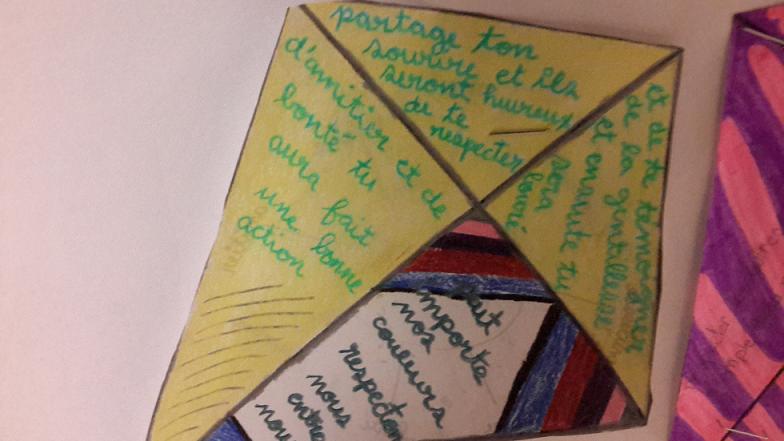 partage ton
sourire et ils
seront heureux
de te
respecter
et de te témoigner
de la gentillesse
et ensuite tu
sera
d'amitier et de
bonté tu
aura fait
une bonne
action
importe
nos
couleurs
respecton
nous
entre
nou